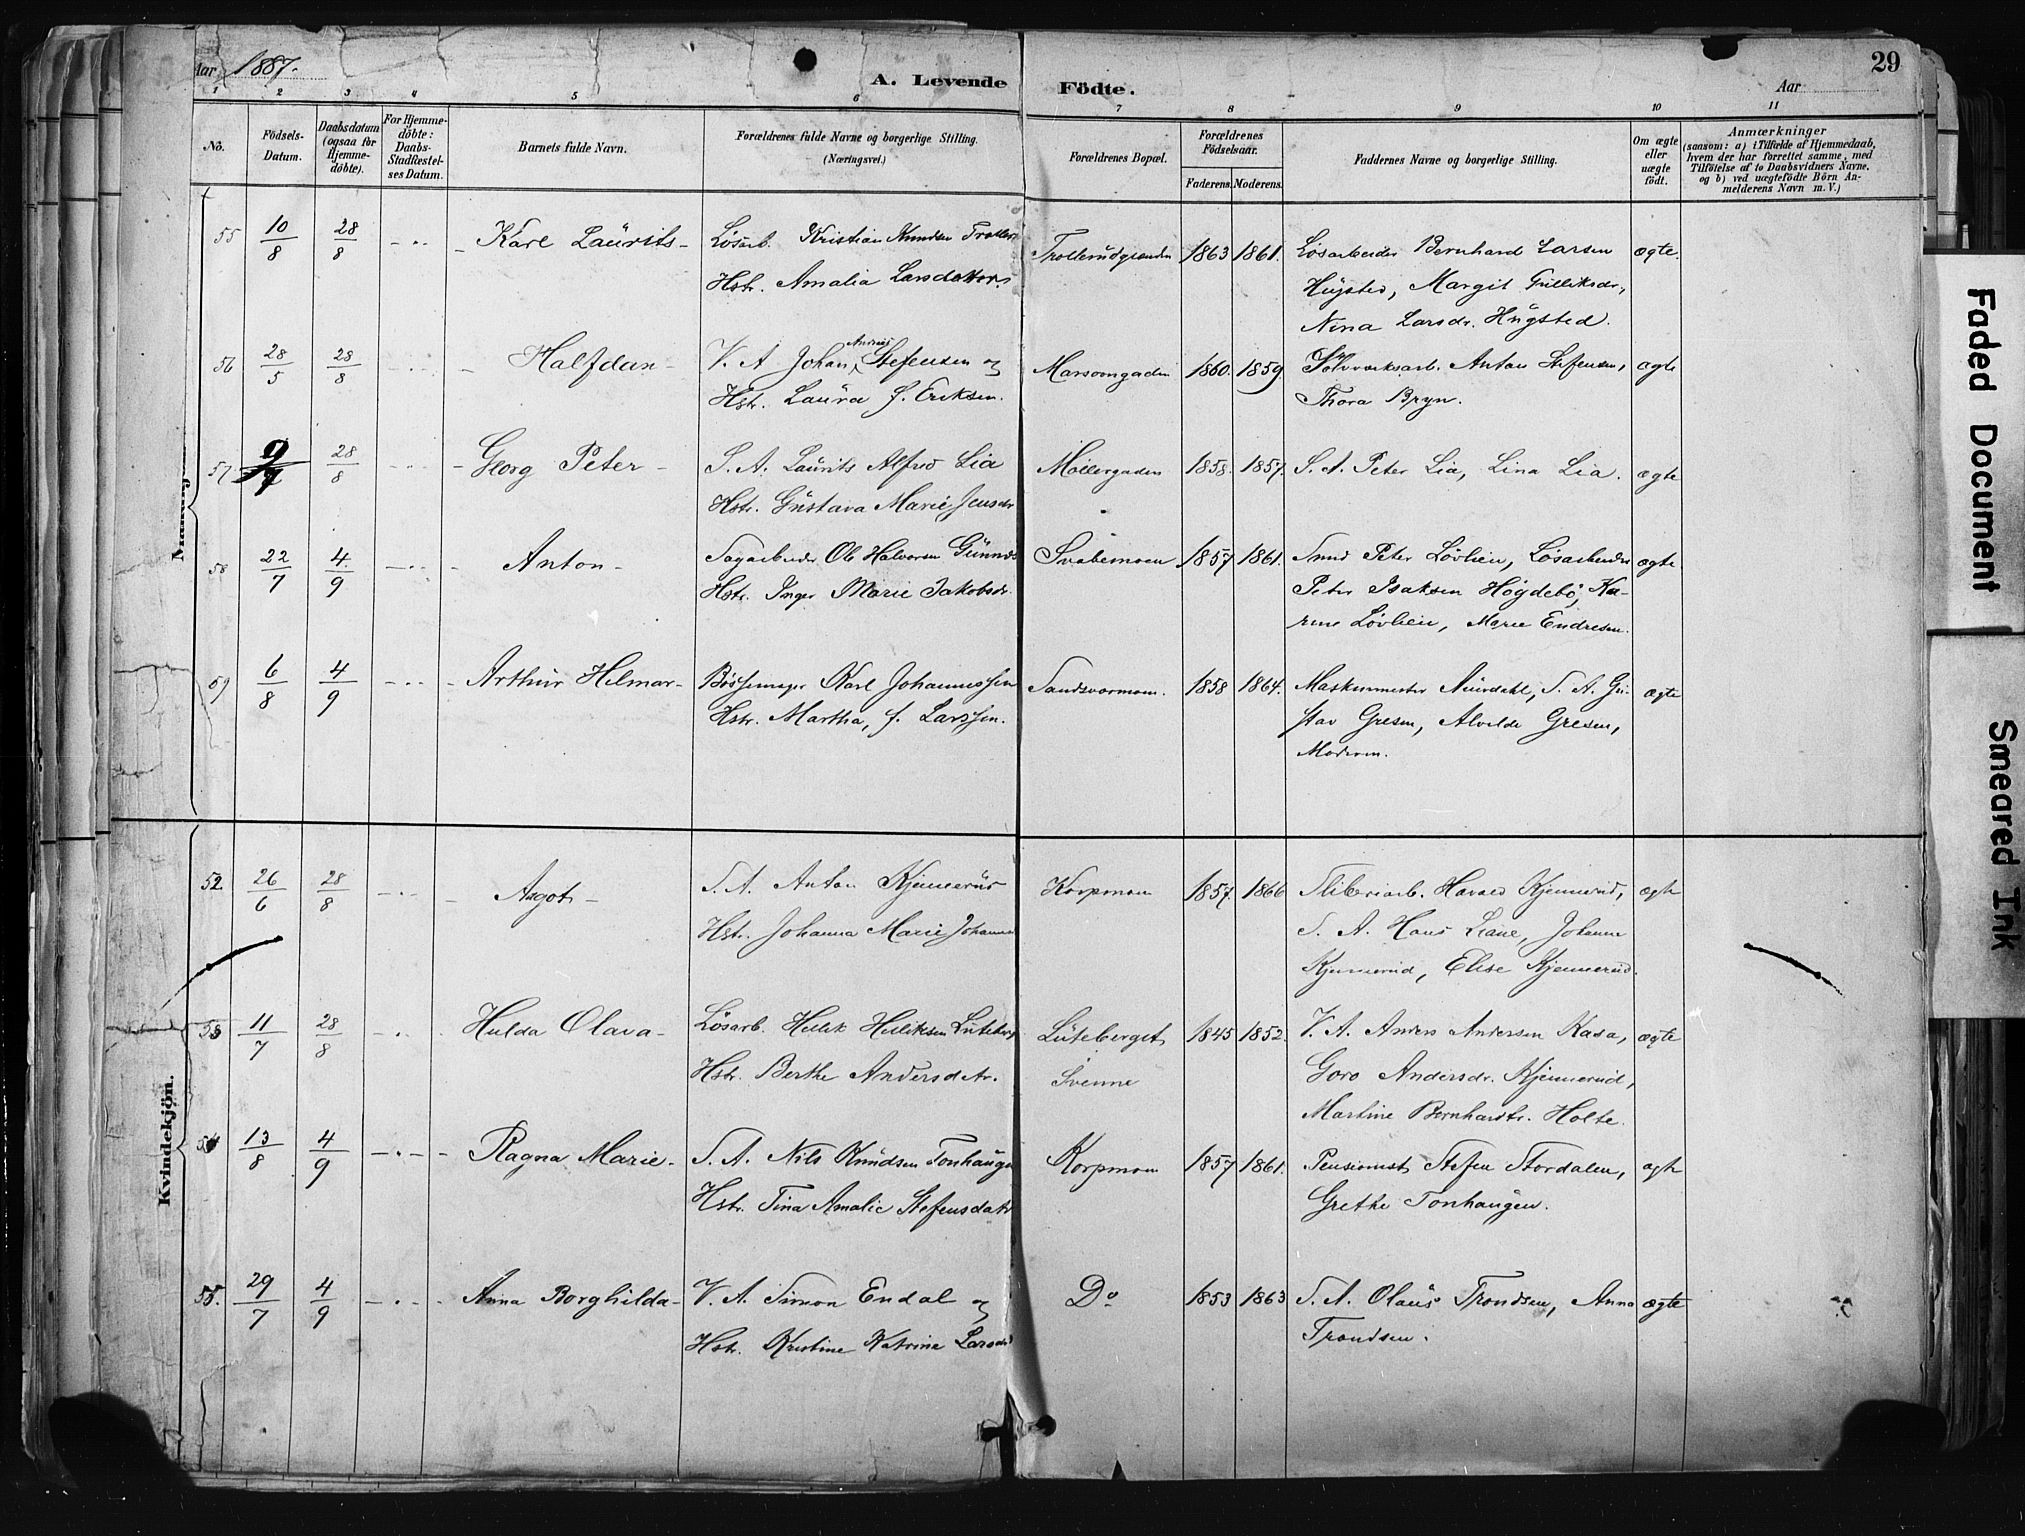 Aar 1887.
A. Levende Födte.
Aar
29
1 2 3 4 5 6 7 8 9 10 11
No.
Födsels-
Datum.
Daabsdatum
(ogsaa for
Hjemme-
döbte).
For Hjemme-
döbte:
Daabs-
Stadfæstel-
ses Datum.
Barnets fulde Navn.
Forældrenes fulde Navne og borgerlige Stilling.
(Næringsvei.)
Forældrenes Bopæl.
Forældrenes
Födselsaar.
Faderens. Moderens.
Faddernes Navne og borgerlige Stilling.
Om ægte
eller
uægte
födt.
Anmærkninger
(saasom: a) i Tilfælde af Hjemmedaab,
hvem der har forrettet samme, med
Tilföielse af to Daabsvidners Navne.
og b) ved uægtefödte Börn An-
melderens Navn m. V.)
55 10/8 28/8 - „ - Karl Laurits - Løsarb. Kristian Knudsen 1863 1861. Løsarbeider Bernhard Larsen ægte.
Hstr. Amalia Larsdatter
Hugsted, Margit Gulliksdr.,
Nina Larsdr. Hugsted.
56 28/5 28/8 - Halfdan - V. A Johan Andreas Stefensen og 1860. 1859. Sølvværksarb. Anton Stefensen, ægte
Hstr. Laura f. Eriksen.
Thora Bryn.
57 28/8 Georg Peter - S. A. Laurits Alfred Lia Møllergaden 1858. 1857. S. A. Peter Lia, Lina Lia. ægte
Hstr. Gustava Marie Jensdr
58 22/7 4/9 - „ - Anton - Sagarbeider Ole Halvorsen Svabemoen 1857 1861. Smed Peter Løvlien, Løsarbeider ægte
Hstr. Inger Marie Jakobsdr.
Peter Isaksen Høgdebø, Ka-
rine Løvlien, Marie Endresen.
59 6/8 4/9 - „ - Arthur Hilmar - Bøssemager Karl Johannessen 1858 1864. Maskinmester S. A. Gu- ægte
Hstr. Martha, f. Larssen.
stav Gresen, Alvilde Gresen,
Moderen.
52 26/6 28/8 - „ - Aagot - S. A. Anton Kjennerud Korpmoen 1857. 1866 Sliberiarb. Kjennerud, ægte
Hstr. Johanna Marie
S. A. Hans Liane, Johanne
Kjennerud, Elise Kjennerud.
53 11/7 28/8 - „ - Hulda Olava - Løsarb. Hellik Helliksen Luteberg Luteberget 1845 1852. V. A. Anders Andersen Kasa, ægte
Hstr. Berthe Andersdtr.
Svenne
Goro Andersdr. Kjennerud,
Martine Bernhardtr. Holte.
54 13/8 4/9 - „ - Ragna Marie - S. A. Nils Knudsen Tonhaugen Korpmoen 1857 1861. Pensionist Stefen Stordalen, ægte
Hstr. Tina Amalie Stefensdatr
Grethe Tonhaugen.
55. 29/7 4/9 - „ - Anna Borghilda - V. A. Simon Endal og Do 1853 1863 S. A. Olaus Trondsen, Anna ægte
Hstr. Kristine Katrine Larsdr
Trondsen.
Kvindekjön.
Faded Document
Smeared Ink